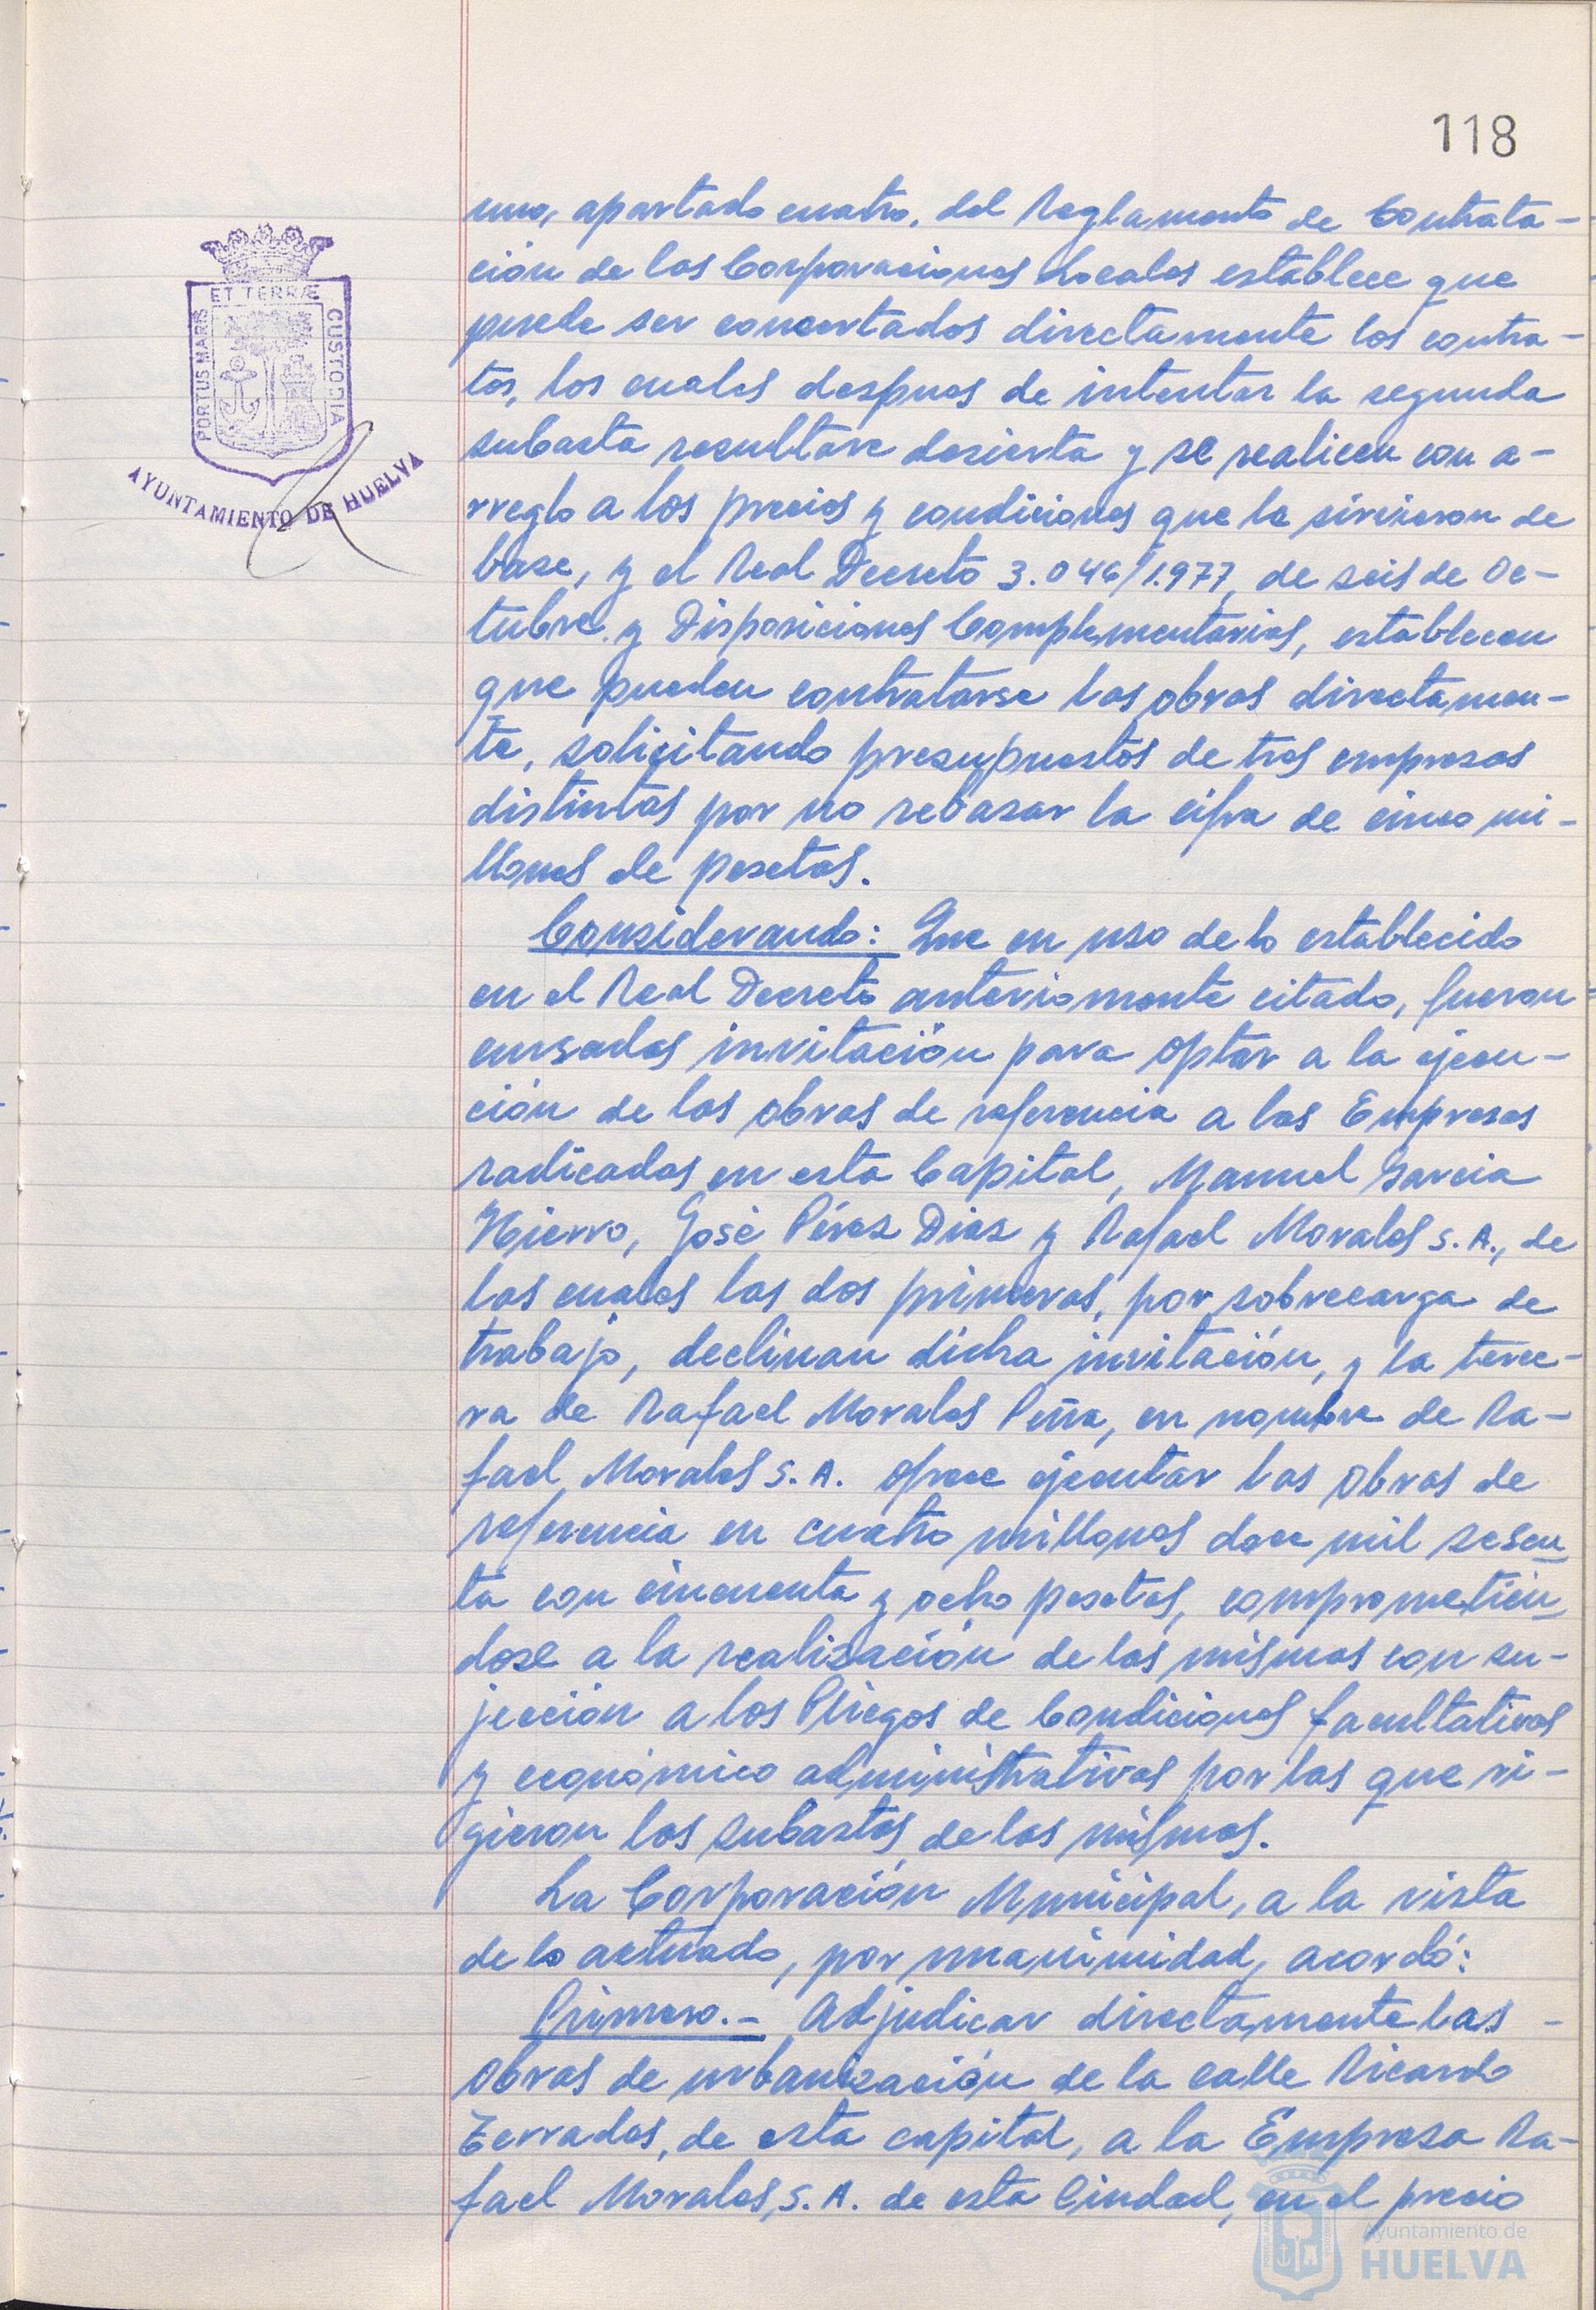 118
ET TERRÆ
PORTUS MARIS
CUSTODIA
AYUNTAMIENTO DE HUELVA
uno, apartado cuatro, del Reglamento de Contrata-
ción de las Corporaciones Locales establece que
puede ser concertados directamente los contra-
tos, los cuales despues de intentar la segunda
subasta resultare desierta y se realicen con a-
rreglo a los precios y condiciones que le sirvieron de
base, y el Real Decreto 3.046/1.977, de seis de Oc-
tubre y Disposiciones Complementarias, establecen
que pueden contratarse las obras directamen-
te, solicitando presupuestos de tres empresas
distintas por no rebasar la cifra de cinco mi-
llones de pesetas.
Considerando: Que en uso de lo establecido
en el Real Decreto anteriomente citado, fueron
cursadas invitación para optar a la ejecu-
ción de las obras de referencia a las Empresas
radicadas en esta Capital, Manuel Garcia
Hierro, José Pérez Dias y Rafael Morales S.A., de
las cuales las dos primeras, por sobrecarga de
trabajo, declinan dicha invitación, y la terce-
ra de Rafael Morales Peña, en nombre de Ra-
fael Morales S.A. ofrece ejecutar las obras de
referencia en cuatro millones doce mil sesen
ta con cincuenta y ocho pesetas, comprometien
dose a la realización de las mismas con su-
jección a los Pliegos de Condiciones facultativas
y económico administrativas por las que ri-
gieron las subastas de las mismas.
La Corporación Municipal, a la vista
de lo actuado, por unanimidad, acordó:
Primero.- Adjudicar directamente las -
obras de urbanización de la calle Ricardo
Terrades, de esta capital, a la Empresa Ra-
fael Morales, S.A. de esta Ciudad, en el precio
Ayuntamiento de
HUELVA